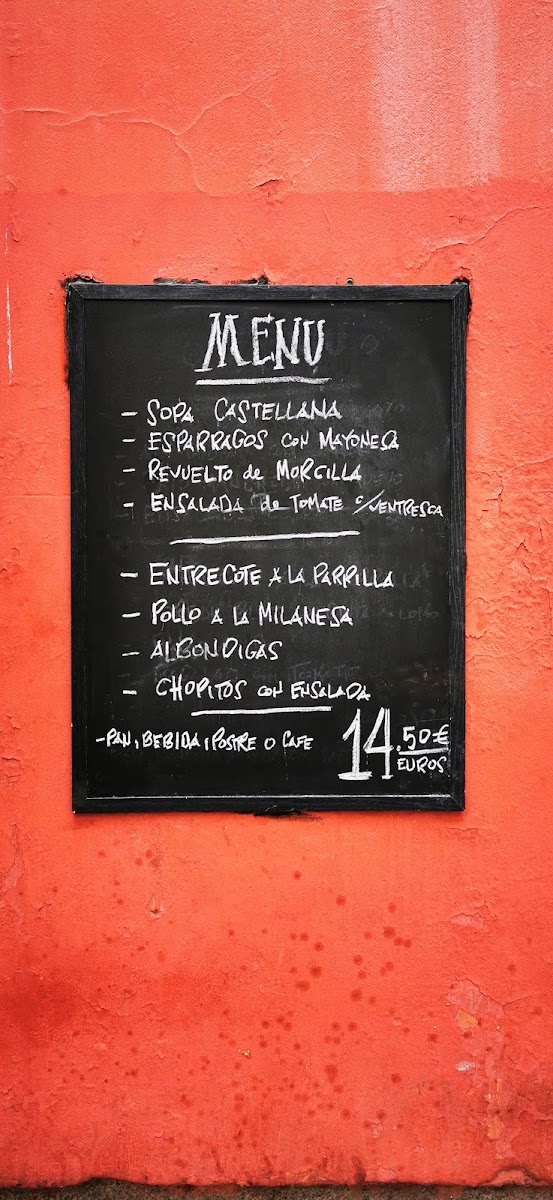 MENU
- SOPA CASTELLANA
- ESPARRAGOS CON MAYONESA
- REVUELTO de MORCILLA
- ENSALADA de TOMATE c/VENTRESCA
- ENTRECOTE A LA PARRILLA
- POLLO A LA MILANESA
- ALBONDIGAS
- CHOPITOS CON ENSALADA
- PAN, BEBIDA, POSTRE O CAFE
14.50€
EUROS